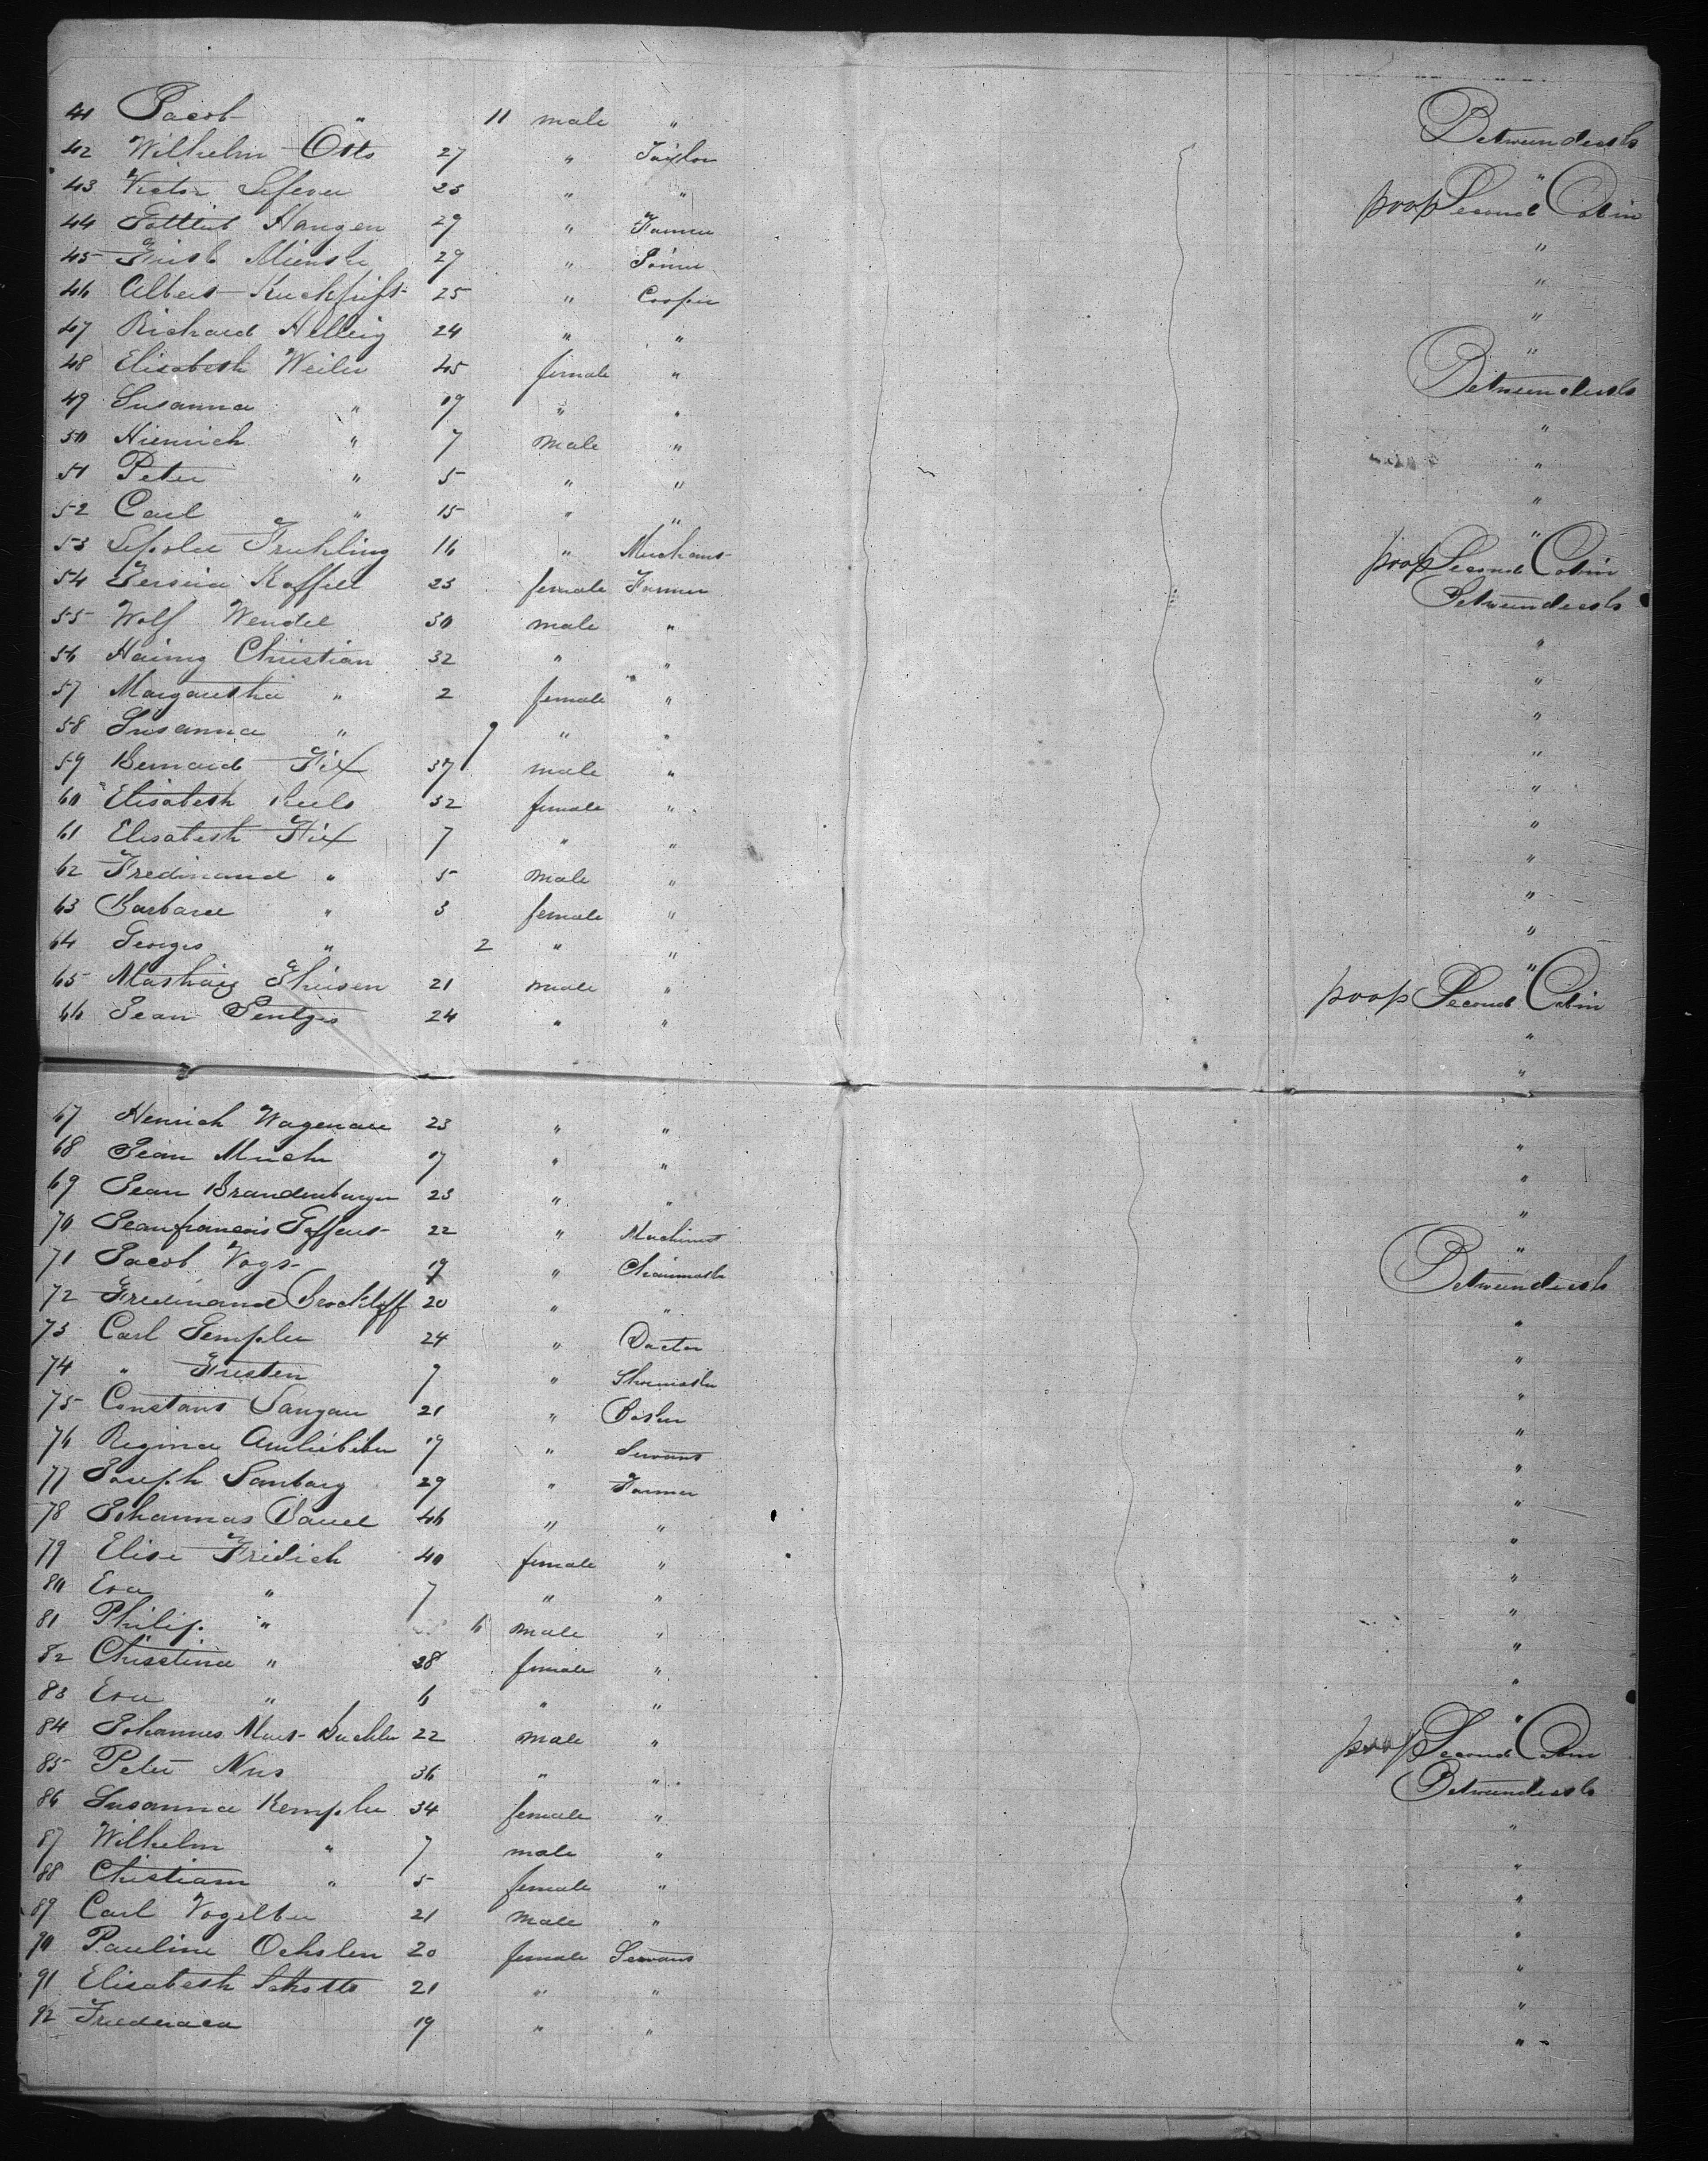 41 Jacob " 11 male " Betweendecks
42 Wilhelm Otto 27 " Taylor "
43 Victor Lefever 23 " " poop Second Cabin
44 Gottlieb Hangen 29 " Farmer "
45 29 " Joiner "
46 Albert 25 " Cooper "
47 Richard Hellwig 24 " " "
48 Elisabeth Weiler 45 female " Betweendecks
49 Susanna " 19 " " "
50 Hienrich " 7 male " "
51 Peter " 5 " " "
52 Carl " 15 " " "
53 Fruhling 16 " poop Second Cabin
54 Koffell 23 female Farmer Betweendecks
55 Wolf Wendel 30 male " "
56 Christian 32 " " "
57 Margaretha " 2 female " "
58 Susanna " 9 " " "
59 Bernard Fix 37 male " "
60 Elisabeth 32 female " "
61 Elisabeth Fix 7 " " "
62 Fredinand " 5 male " "
63 Barbara " 3 female " "
64 Georges " 2 " " "
65 Theisen 21 male " poop Second Cabin
66 Jean Jentges 24 " " "
67 Henrich Wagenau 23 " " "
68 Jean 17 " " "
69 Jean Brandenburger 23 " " "
70 Jean francois 22 " Machinist "
71 Jacob Vogt 19 " Betweendecks
72 Fredinand 20 " " "
73 Carl Sempler 24 " Doctor "
74 " 9 " Shoemaker "
75 Constant 21 " "
76 Regina 19 " Servant "
77 Joseph 29 " Farmer "
78 Johannas 46 " " "
79 Elise Fridich 40 female " "
80 Eva " 7 " " "
81 Philip " 6 male " "
82 Chisstina " 28 female " "
83 Eva " 6 " " "
84 Johannes 22 male " poop Second Cabin
85 Peter Nus 36 " " Betweendecks
86 Susanna Kempler 34 female " "
87 Wilhelm " 7 male " "
88 Chistiann " 5 female " "
89 Carl 21 male " "
90 Pauline Ochslen 20 female Servant "
91 Elisabeth Schotts 21 " " "
92 19 " " "